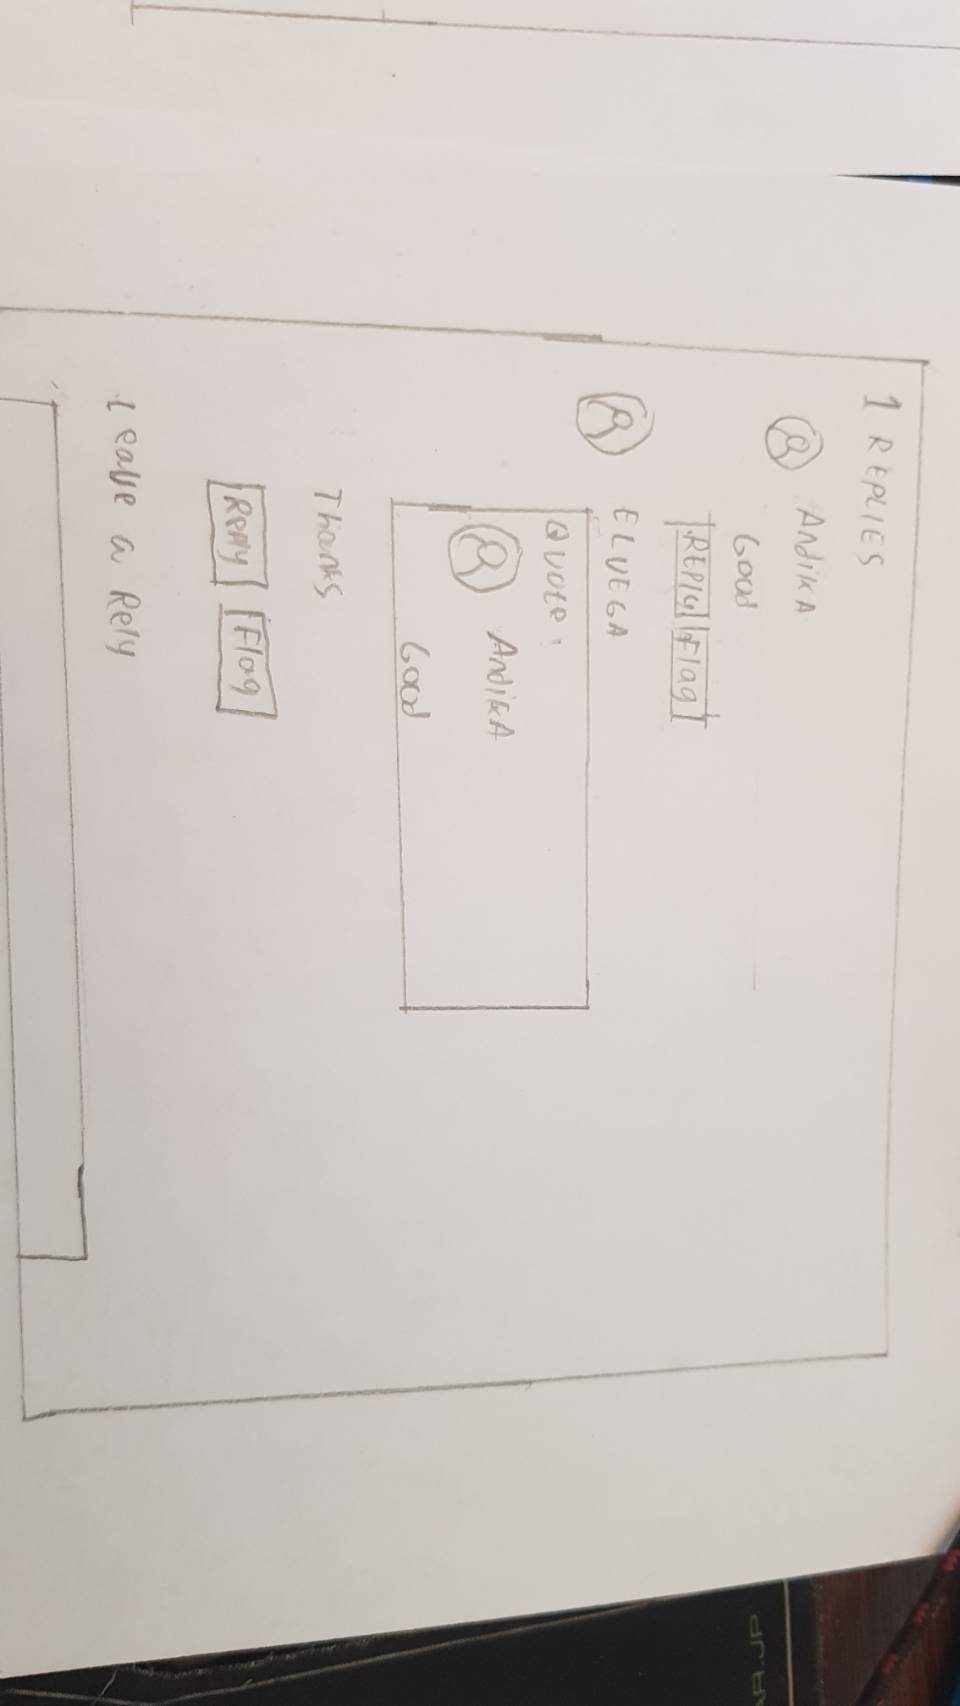 1 REPLIES
AndikA
Good
REPly Flag
ELVEGA
Quote:
AndikA
Good
Thanks
Reply Flag
Leave a Rely